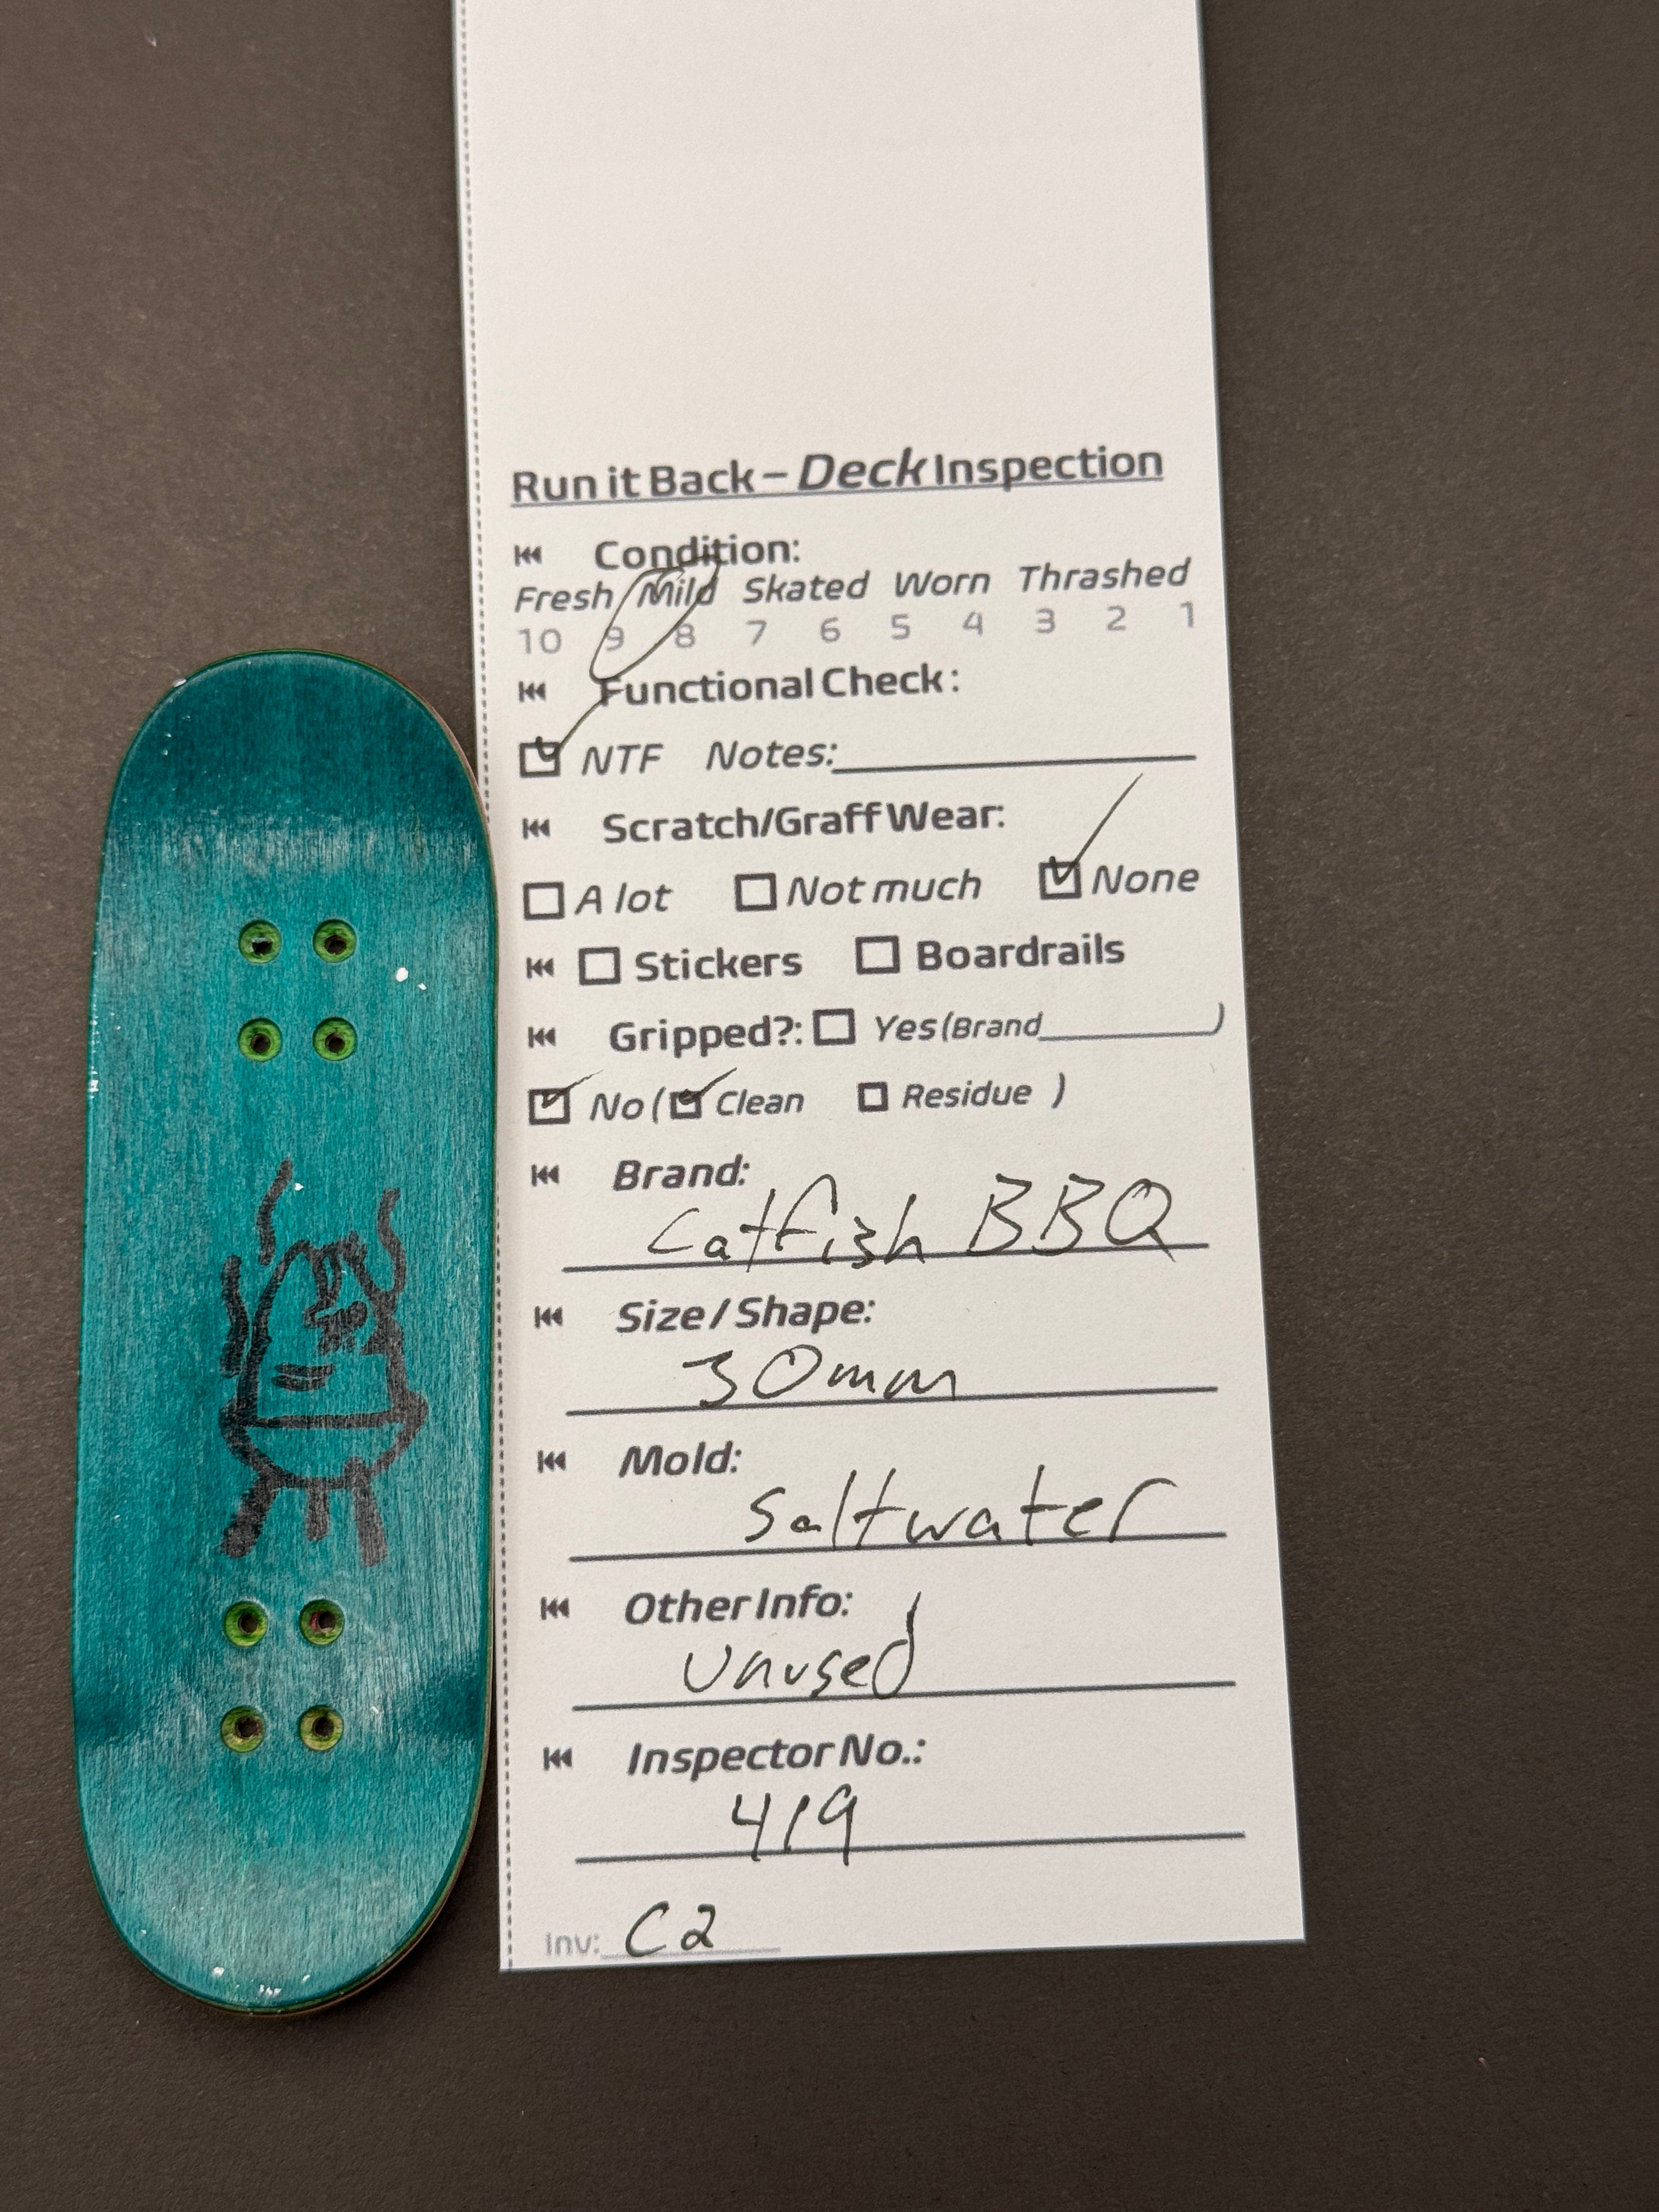 Run it Back – Deck Inspection
Condition:
Fresh Mild Skated Worn Thrashed
10 9 8 7 6 5 4 3 2 1
Functional Check:
NTF Notes:
Scratch/Graff Wear:
A lot Not much None
Stickers Boardrails
Gripped?: Yes (Brand )
No ( Clean Residue )
Brand:
Catfish BBQ
Size / Shape:
30mm
Mold:
Saltwater
Other Info:
Unused
Inspector No.:
419
Inv: C2